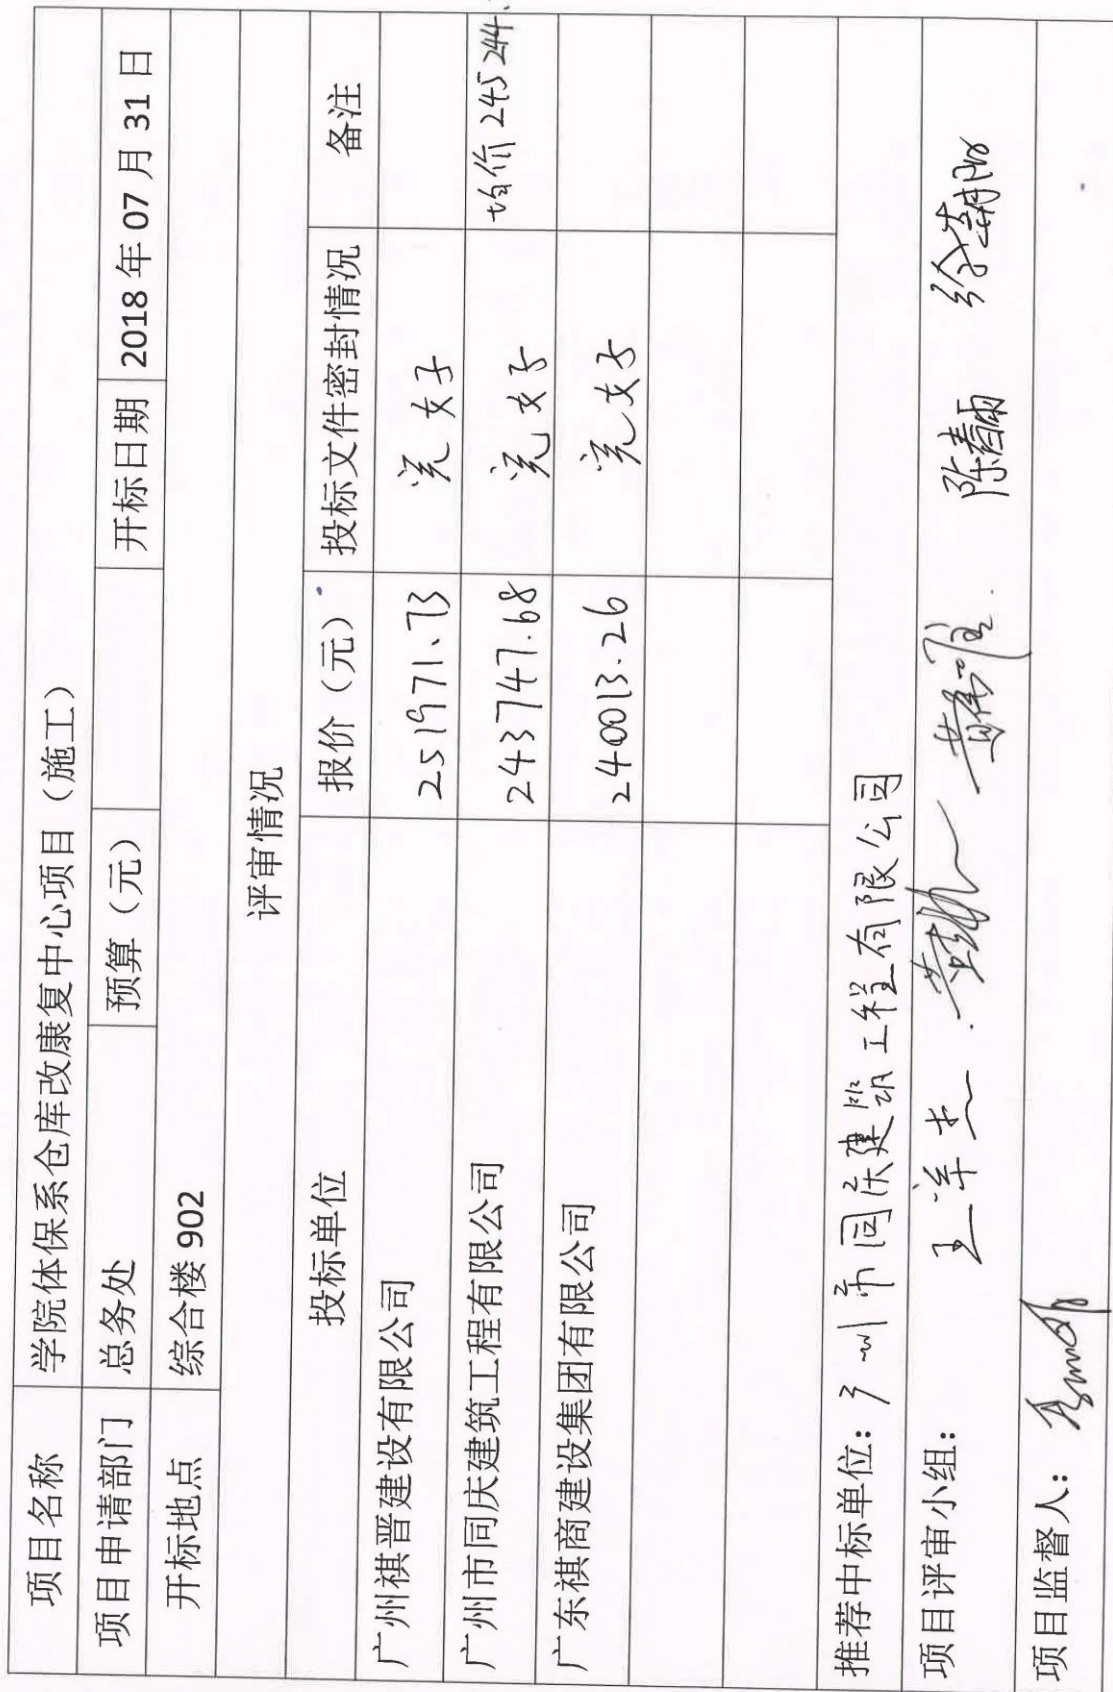 项目名称 学院体保系仓库改康复中心项目（施工）
项目申请部门 总务处 预算（元） 开标日期 2018 年 07 月 31 日
开标地点 综合楼 902
评审情况
投标单位 报价（元） 投标文件密封情况 备注
广州祺晋建设有限公司 251971.73 完好
广州市同庆建筑工程有限公司 243747.68 完好 均价 245244.
广东祺商建设集团有限公司 240013.26 完好
推荐中标单位：广州市同庆建筑工程有限公司
项目评审小组：
项目监督人：